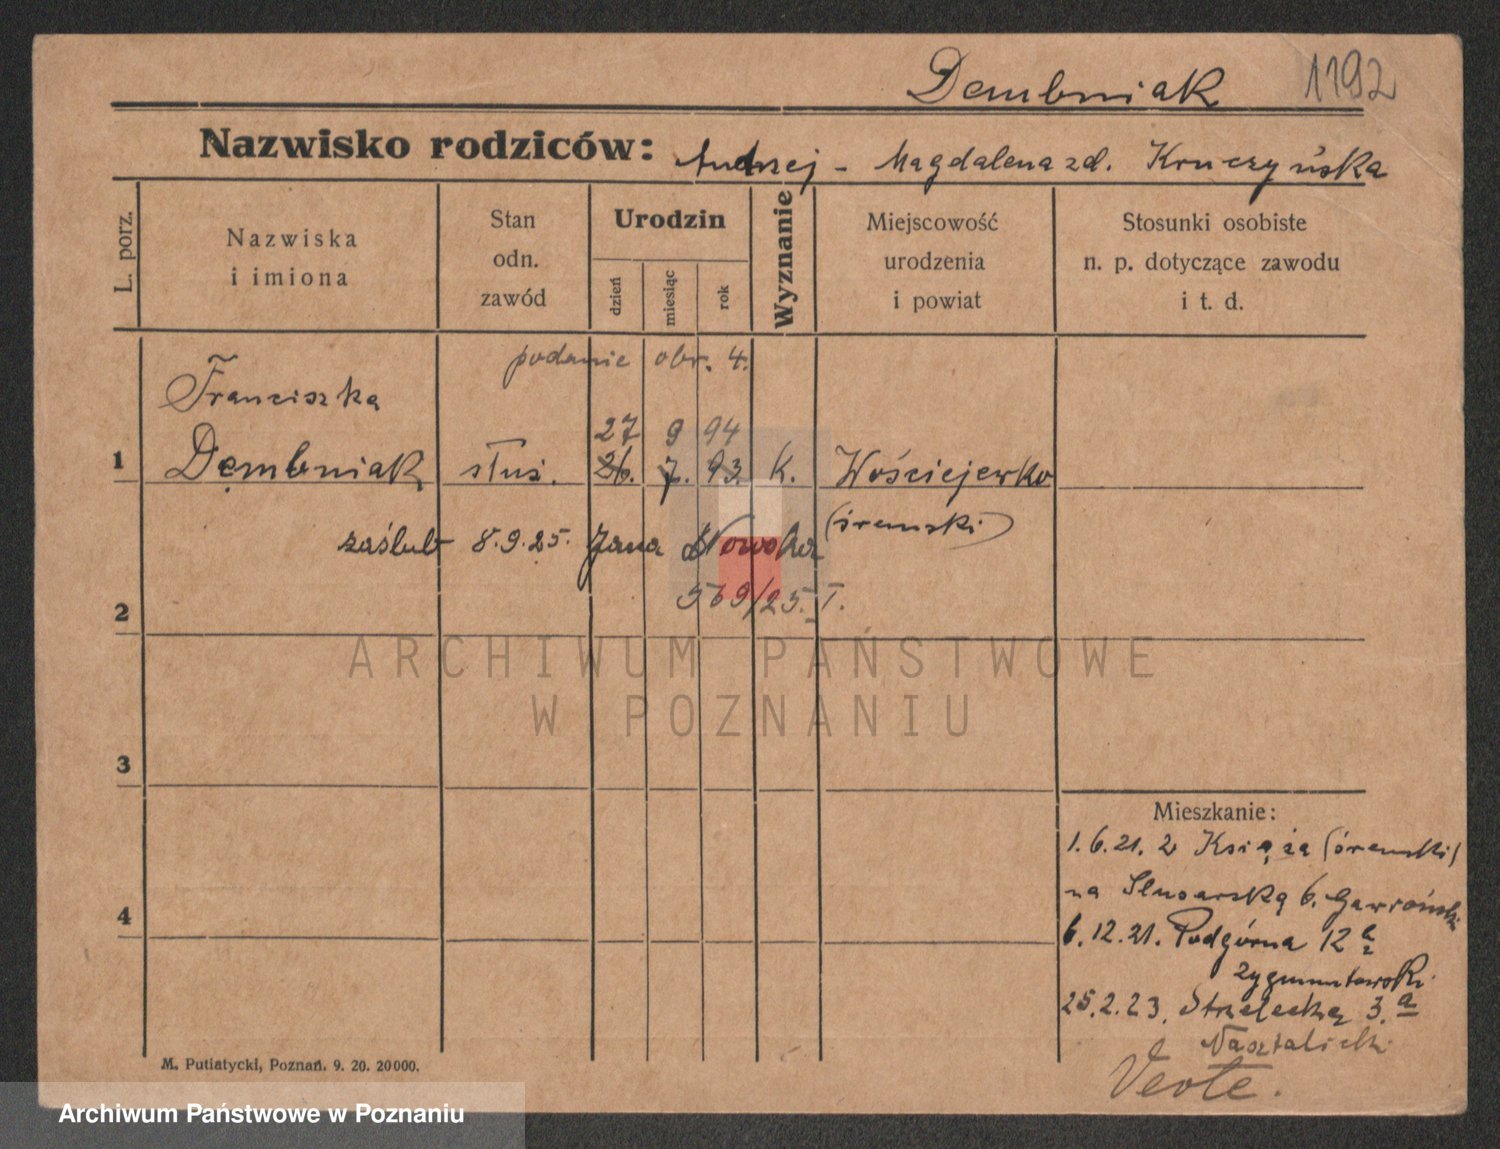 Dembniak 1192
Nazwisko rodziców: Andrzej - Magdalena zd. Kruczyńska
L. porz.
Nazwiska
i imiona
Stan
odn.
zawód
Urodzin
dzień
miesiąc
rok
Wyznanie
Miejscowość
urodzenia
i powiat
Stosunki osobiste
n. p. dotyczące zawodu
i t. d.
podanie obr. 4.
Franciszka
27 9 94
1 Dembniak służ. 26. 7. 93 K. Wościejewko
(śremski)
zaślub 8.9.25. Jana Nowaka
569/25. I.
2
ARCHIWUM PAŃSTWOWE
W POZNANIU
3
Mieszkanie:
1.6.21. z Książa (śremski)
na Slusarską 6. Gawroński
4
6.12.21. Podgórna 12a
Zygmuntowski.
25.2.23. Strzelecka 3.a
M. Putiatycki, Poznań. 9. 20. 20000.
Archiwum Państwowe w Poznaniu